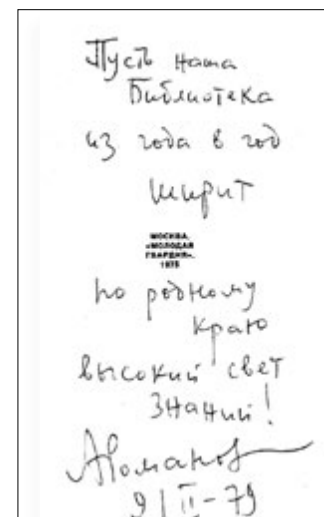 Пусть наша
Библиотека
из года в год
ширит
МОСКВА,
«МОЛОДАЯ
ГВАРДИЯ»,
1978
по родному
краю
высокий свет
знаний!
АРоманов
9/II-79